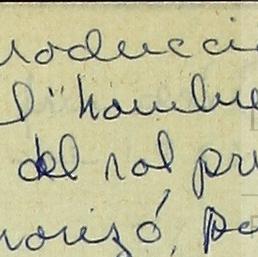 roducci
l "hombre
del rol pr
orizó, pa